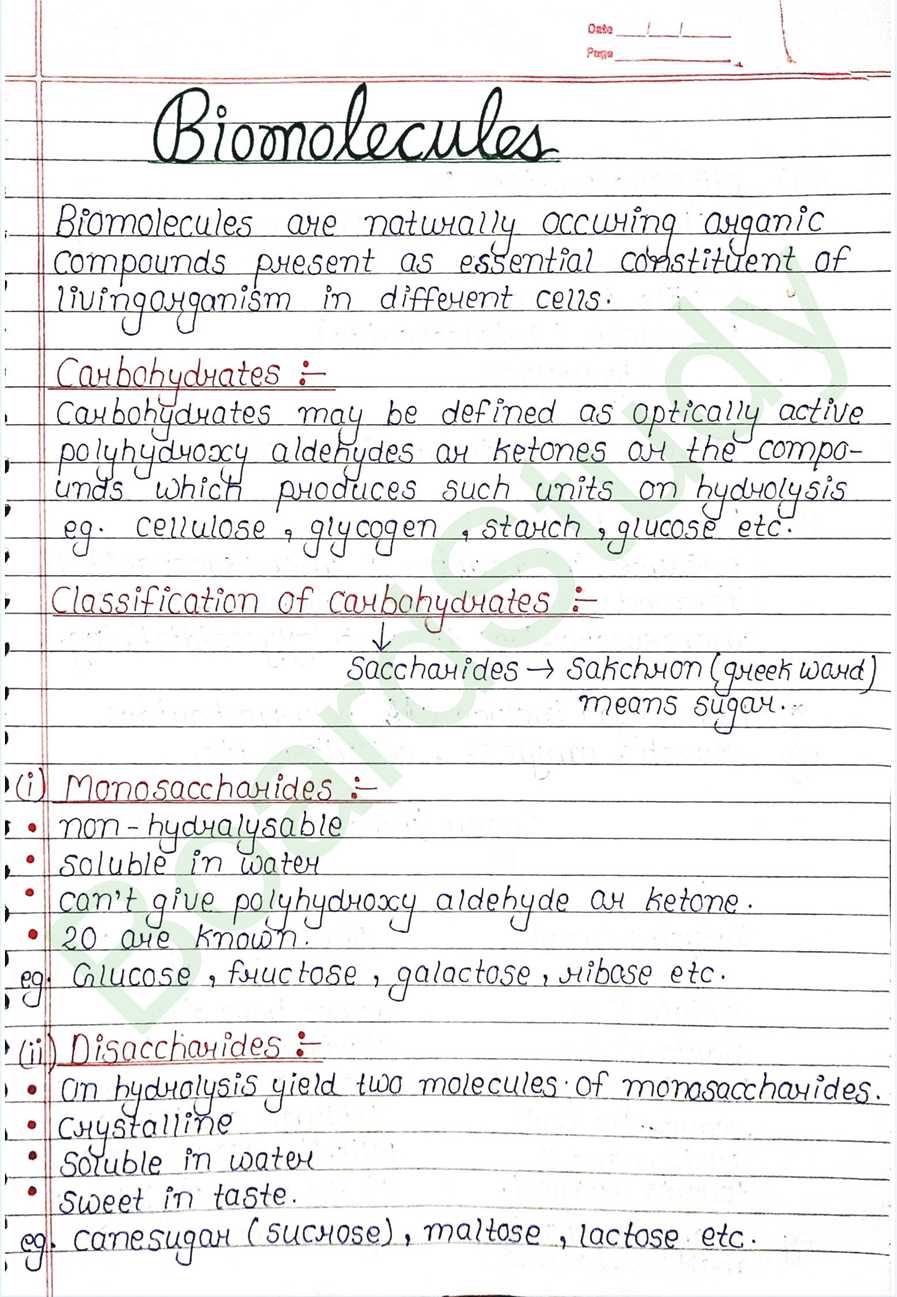 Date / /
Page
Biomolecules
Biomolecules are naturally occuring organic
compounds present as essential constituent of
livingorganism in different cells.
Carbohydrates :-
Carbohydrates may be defined as optically active
polyhydroxy aldehydes or ketones or the compo-
unds which produces such units on hydrolysis
eg. cellulose , glycogen , starch , glucose etc.
Classification of carbohydrates :-
↓
Saccharides → Sakchron (greek word)
means sugar.
(i) Monosaccharides :-
• non-hydralysable
• soluble in water
• can't give polyhydroxy aldehyde or ketone.
• 20 are known.
eg. Glucose , fructose , galactose , ribase etc.
(ii) Disaccharides :-
• On hydrolysis yield two molecules of monosaccharides.
• Crystalline
• Soluble in water
• sweet in taste.
eg. canesugar (sucrose) , maltose , lactose etc.
BoardStudy